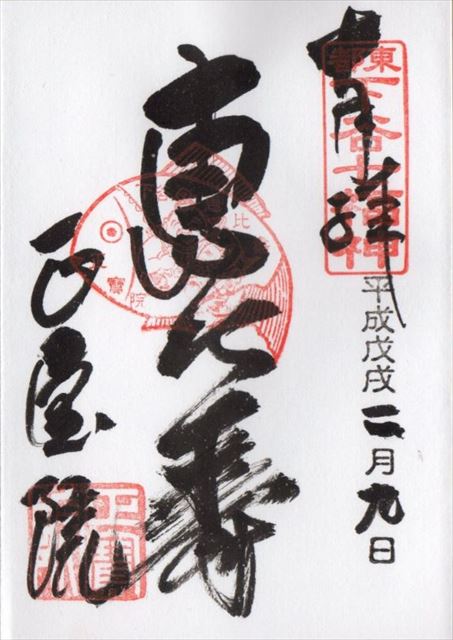 東都
下谷七福神
平成戊戌二月九日
恵比寿
正宝院